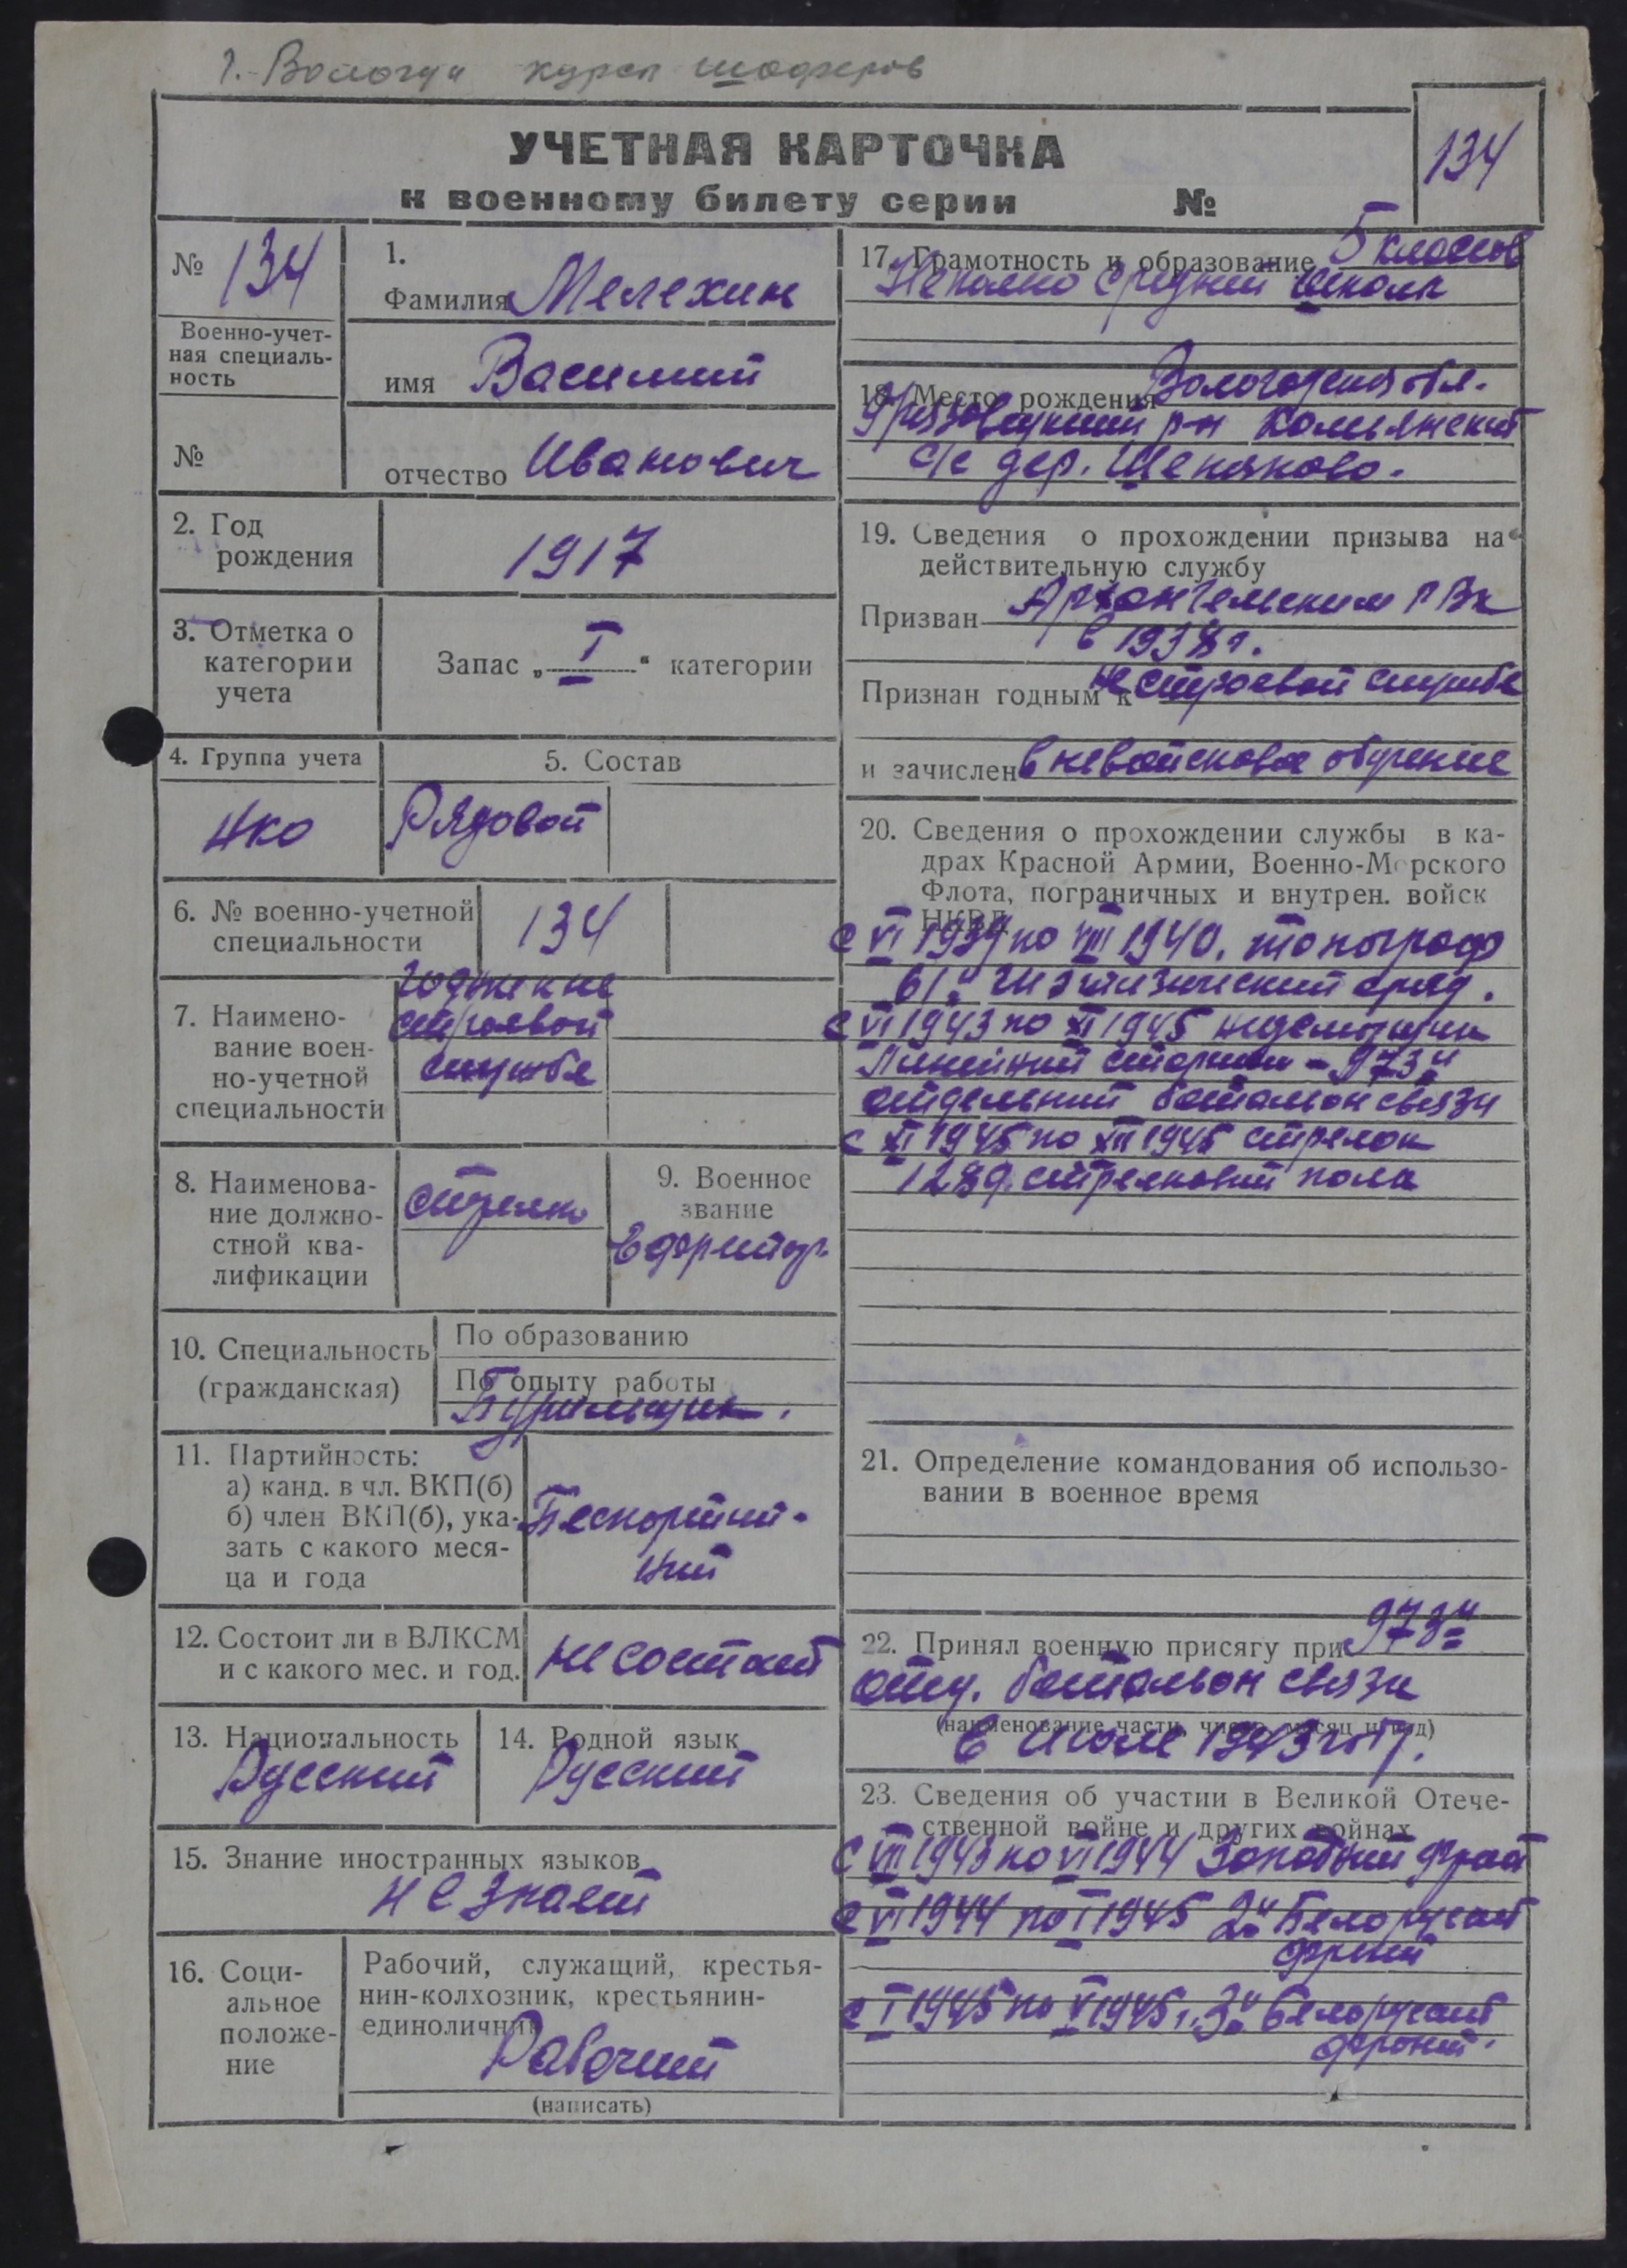 г. Вологда курсы шоферов
УЧЕТНАЯ КАРТОЧКА
к военному билету серии №
134
№ 134
Военно-учет-
ная специаль-
ность
№
1.
Фамилия Мелехин
имя Василий
отчество Иванович
2. Год
рождения
1917
3. Отметка о
категории
учета
Запас „ I “ категории
4. Группа учета
5. Состав
Рядовой
6. № военно-учетной
специальности
134
7. Наимено-
вание воен-
но-учетной
специальности
годжен не
строевой
службе
8. Наименова-
ние должно-
стной ква-
лификации
стрелк
9. Военное
звание
Ефрейтор
10. Специальность
(гражданская)
По образованию
По опыту работы
Бурильщик.
11. Партийность:
а) канд. в чл. ВКП(б)
б) член ВКП(б), ука-
зать с какого меся-
ца и года
Беспартий-
ный
12. Состоит ли в ВЛКСМ
и с какого мес. и год.
не состоит
13. Национальность
Русский
14. Родной язык
Русский
15. Знание иностранных языков
не знает
16. Соци-
альное
положе-
ние
Рабочий, служащий, крестья-
нин-колхозник, крестьянин-
единоличник
Рабочий
(написать)
17. Грамотность и образование 5 классов
Неполно средней школы
18. Место рождения Вологодская обл.
Грязовецкий р-н Комьянский
с/с дер. Щекоково.
19. Сведения о прохождении призыва на
действительную службу
Призван Архангельским РВК
в 1938 г.
Признан годным к нестроевой службе
и зачислен в невойсковое обучение
20. Сведения о прохождении службы в ка-
драх Красной Армии, Военно-Морского
Флота, пограничных и внутрен. войск
НКВД
с VI 1939 по VIII 1940. топограф
61й отряд.
с VI 1943 по XI 1945
Линейный 973й
отдельный батальон связи
с XI 1945 по XII 1945 стрелок
1289 стрелковый полк
21. Определение командования об использо-
вании в военное время
22. Принял военную присягу при 973й
отд. батальон связи
(наименование части, число, месяц и год)
в июле 1943 год.
23. Сведения об участии в Великой Отече-
ственной войне и других войнах
с VIII 1943 по VI 1944 Западный фронт
с VI 1944 по I 1945 2й Белорусский
фронт
с I 1945 по V 1945 г. 3й Белорусский
фронт.